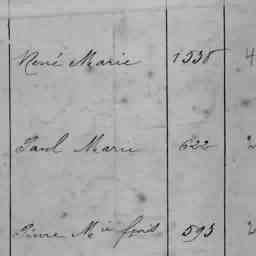 René Marie 1338 4
Paul Marie 622 2
Pierre Mie fois 593 2